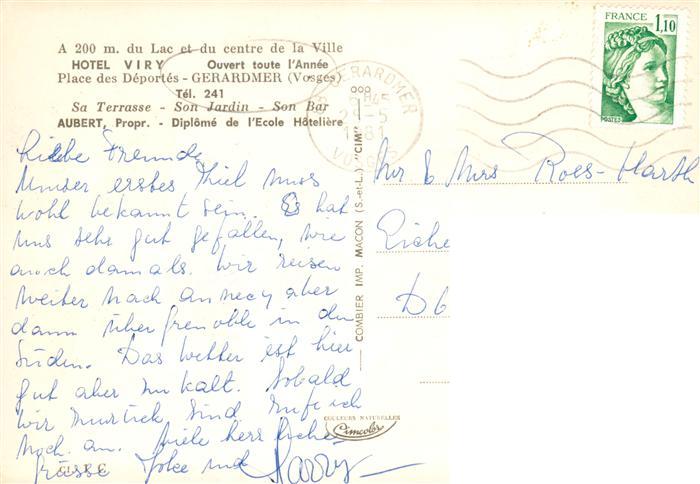 A 200 m. du Lac et du centre de la Ville
HOTEL VIRY Ouvert toute l'Année
Place des Déportés - GERARDMER (Vosges)
Tél. 241
Sa Terrasse - Son Jardin - Son Bar
AUBERT, Propr. - Diplômé de l'Ecole Hôtelière
Liebe Freunde
Unser erstes Ziel muss
wohl bekannt sein. Es hat
uns sehr gut gefallen, wie
auch damals. Wir reisen
weiter nach annecy aber
dann über grenoble in den
Süden. Das Wetter ist hier
gut aber zu kalt. Sobald
wir zurück sind rufe ich
noch an. Viele herzliche
grüsse und Harry
COMBIER IMP. MACON (S.-et-L.) "CIM"
GERARDMER
1981
VOSGES
FRANCE 1,10
POSTES
Mr & Mrs Roes-Harth
Eiche
D 6
COULEURS NATURELLES
Cimcolor